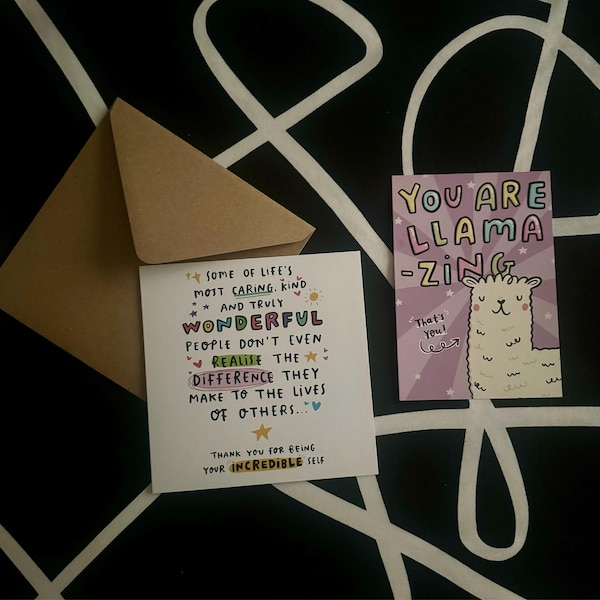 SOME OF LIFE'S
MOST CARING, KIND
AND TRULY
WONDERFUL
PEOPLE DON'T EVEN
REALISE THE
DIFFERENCE THEY
MAKE TO THE LIVES
OF OTHERS...
THANK YOU FOR BEING
YOUR INCREDIBLE SELF
YOU ARE
LLAMA
-ZING
That's
You!